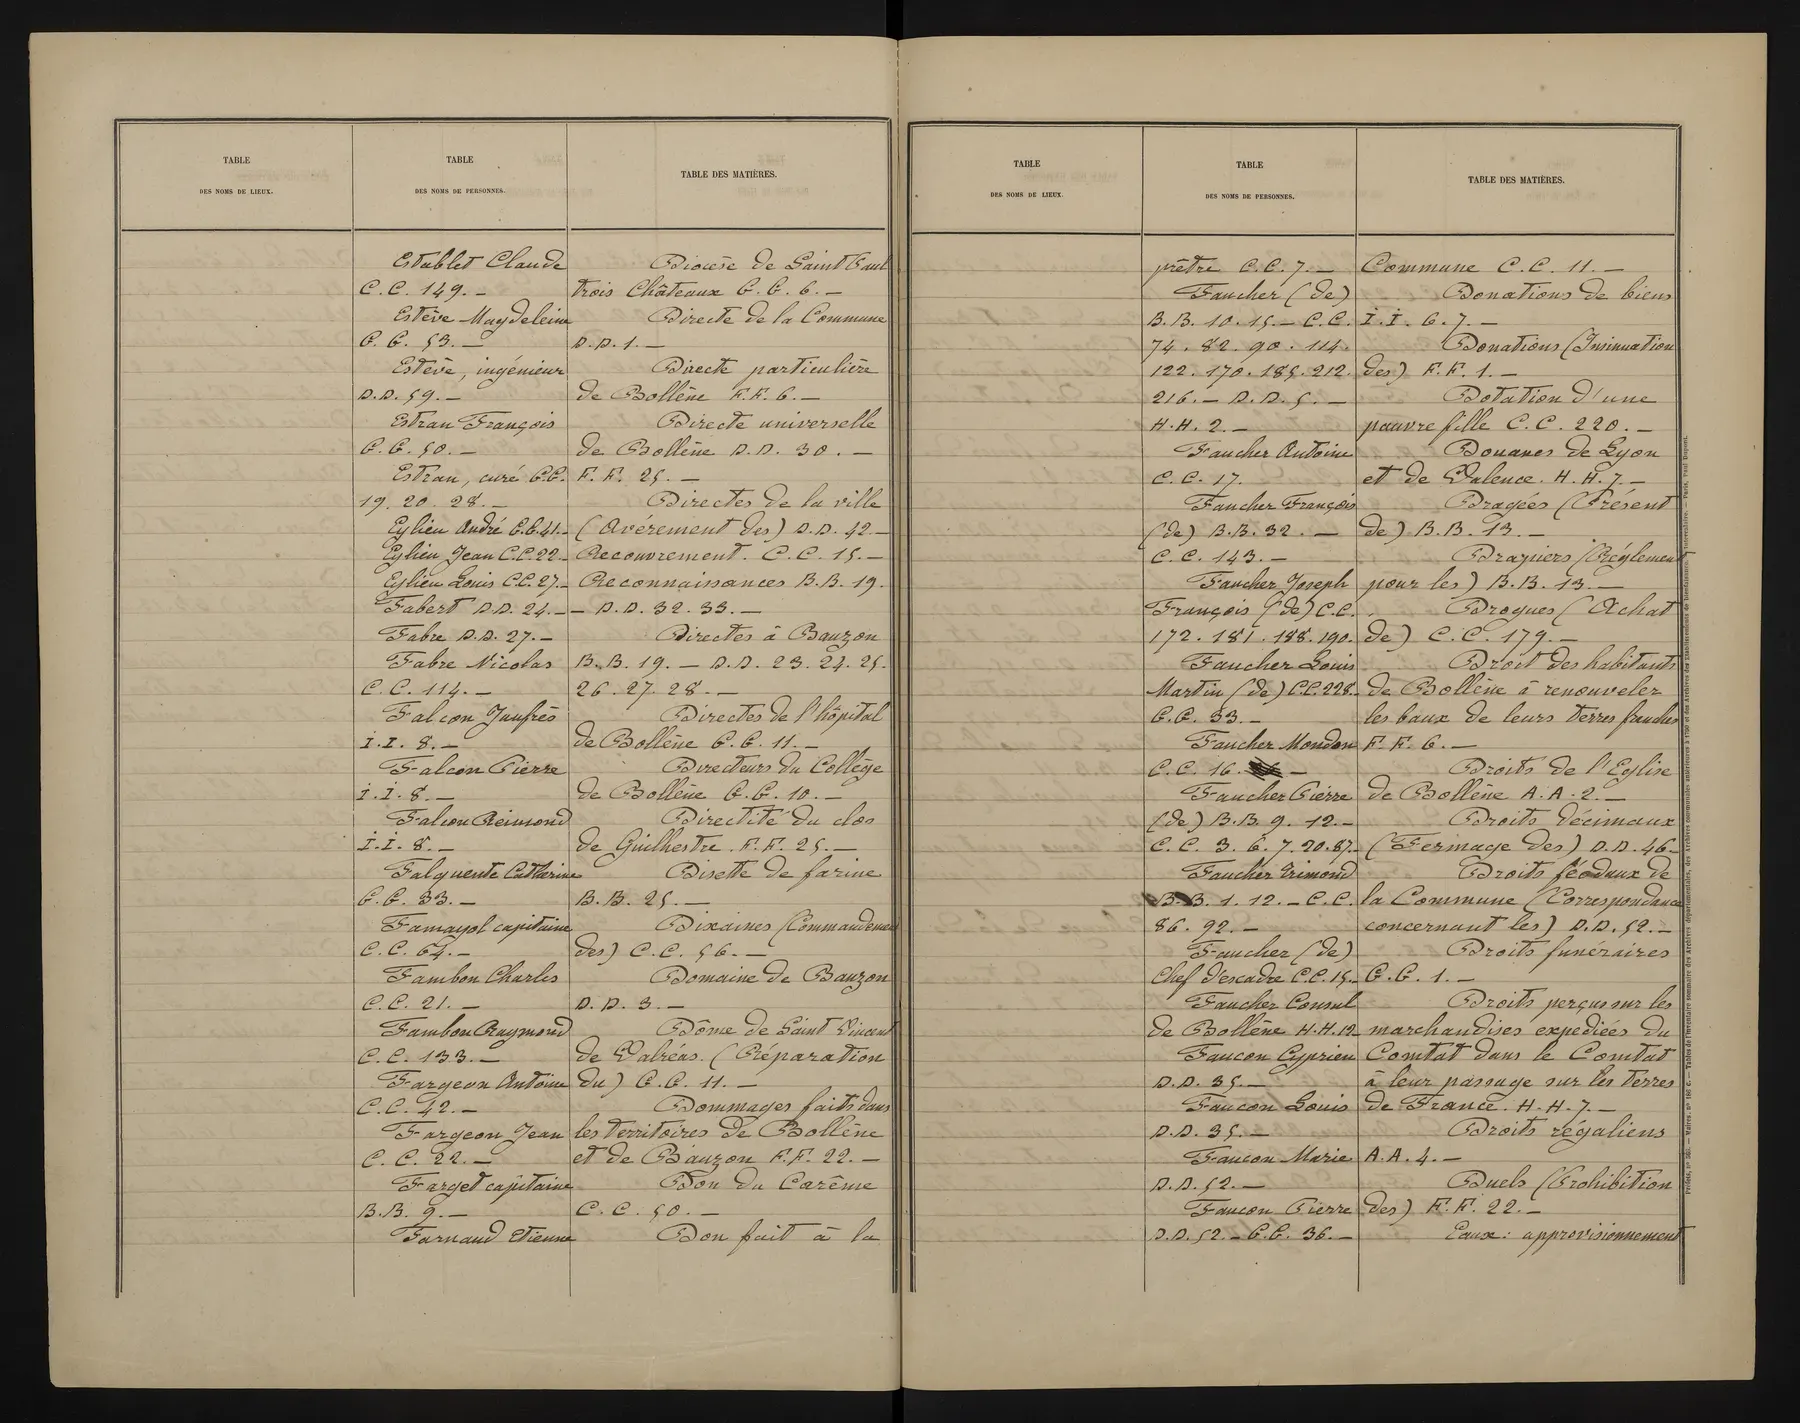 TABLE
DES NOMS DE LIEUX.
TABLE
DES NOMS DE PERSONNES.
TABLE DES MATIÈRES.
Establet Claude
C.C. 149. —
Estève Magdeleine
G.G. 53. —
Estève, ingénieur
D.D. 59. —
Estran François
G.G. 50. —
Estran, curé G.G.
19. 20. 28. —
Eylieu André G.G. 41. —
Eylieu Jean C.C. 22. —
Eylieu Louis C.C. 27. —
Fabert D.D. 24. —
Fabre D.D. 27. —
Fabre Nicolas
C.C. 114. —
Falcon Jaufrès
I.I. 8. —
Falcon Pierre
I.I. 8. —
Falcon Reimond
I.I. 8. —
Falquente Catherine
G.G. 33. —
Famayol capitaine
C.C. 64. —
Fambon Charles
C.C. 21. —
Fambon Raymond
C.C. 133. —
Fargeon Antoine
C.C. 42. —
Fargeon Jean
C.C. 22. —
Farget capitaine
B.B. 9. —
Farnaud Etienne
Diocèse de Saint Paul
trois Châteaux G.G. 6. —
Directe de la Commune
D.D. 1. —
Directe particulière
de Bollène F.F. 6. —
Directe universelle
de Bollène D.D. 30. —
F.F. 25. —
Directes de la ville
(Avérement des) D.D. 42. —
Recouvrement. C.C. 15. —
Reconnaissances B.B. 19.
— D.D. 32. 33. —
Directes à Bauzon
B.B. 19. — D.D. 23. 24. 25.
26. 27. 28. —
Directes de l'hôpital
de Bollène G.G. 11. —
Directeurs du Collège
de Bollène G.G. 10. —
Directité du clos
de Guilhestre. F.F. 25. —
Disette de farine
B.B. 25. —
Dixaines (Commandement
des) C.C. 56. —
Domaine de Bauzon
D.D. 3. —
Dôme de Saint Vincent
de Valréas. (Réparation
du) G.G. 11. —
Dommages faits dans
les territoires de Bollène
et de Bauzon F.F. 22. —
Don du Carême
C.C. 50. —
Don fait à la
TABLE
DES NOMS DE LIEUX.
TABLE
DES NOMS DE PERSONNES.
TABLE DES MATIÈRES.
prêtre C.C. 7. —
Faucher (de)
B.B. 10. 15. — C.C.
74. 82. 90. 114.
122. 170. 185. 212.
216. — D.D. 5. —
H.H. 2. —
Faucher Antoine
C.C. 17.
Faucher François
(de) B.B. 32. —
C.C. 143. —
Faucher Joseph
François (de) C.C.
172. 181. 188. 190.
Faucher Louis
Martin (de) C.C. 228. —
G.G. 33. —
Faucher Mondon
C.C. 16. —
Faucher Pierre
(de) B.B. 9. 12. —
C.C. 3. 6. 7. 20. 87. —
Faucher Trimond
B.B. 1. 12. — C.C.
86. 92. —
Faucher (de)
Chef d'escadre C.C. 15. —
Faucher Consul
de Bollène H.H. 12 —
Faucon Cyprien
D.D. 35. —
Faucon Louis
D.D. 35. —
Faucon Marie
D.D. 52. —
Faucon Pierre
D.D. 52. — G.G. 36. —
Commune C.C. 11. —
Donations de biens
I.I. 6. 7. —
Donations (Insinuation
des) F.F. 1. —
Dotation d'une
pauvre fille C.C. 220. —
Douanes de Lyon
et de Valence. H.H. 7. —
Dragées (Présent
de) B.B. 13. —
Drapiers (Réglement
pour les) B.B. 13. —
Drogues (Achat
de) C.C. 179. —
Droit des habitants
de Bollène à renouveler
les baux de leurs terres franches
F.F. 6. —
Droits de l'Eglise
de Bollène A.A. 2. —
Droits décimaux
(Fermage des) D.D. 46. —
Droits féodaux de
la Commune (Correspondance
concernant les) D.D. 52. —
Droits funéraires
G.G. 1. —
Droits perçus sur les
marchandises expediées du
Comtat dans le Comtat
à leur passage sur les terres
de France. H.H. 7. —
Droits régaliens
A.A. 4. —
Duels (Prohibition
des) F.F. 22. —
Eaux: approvisionnement